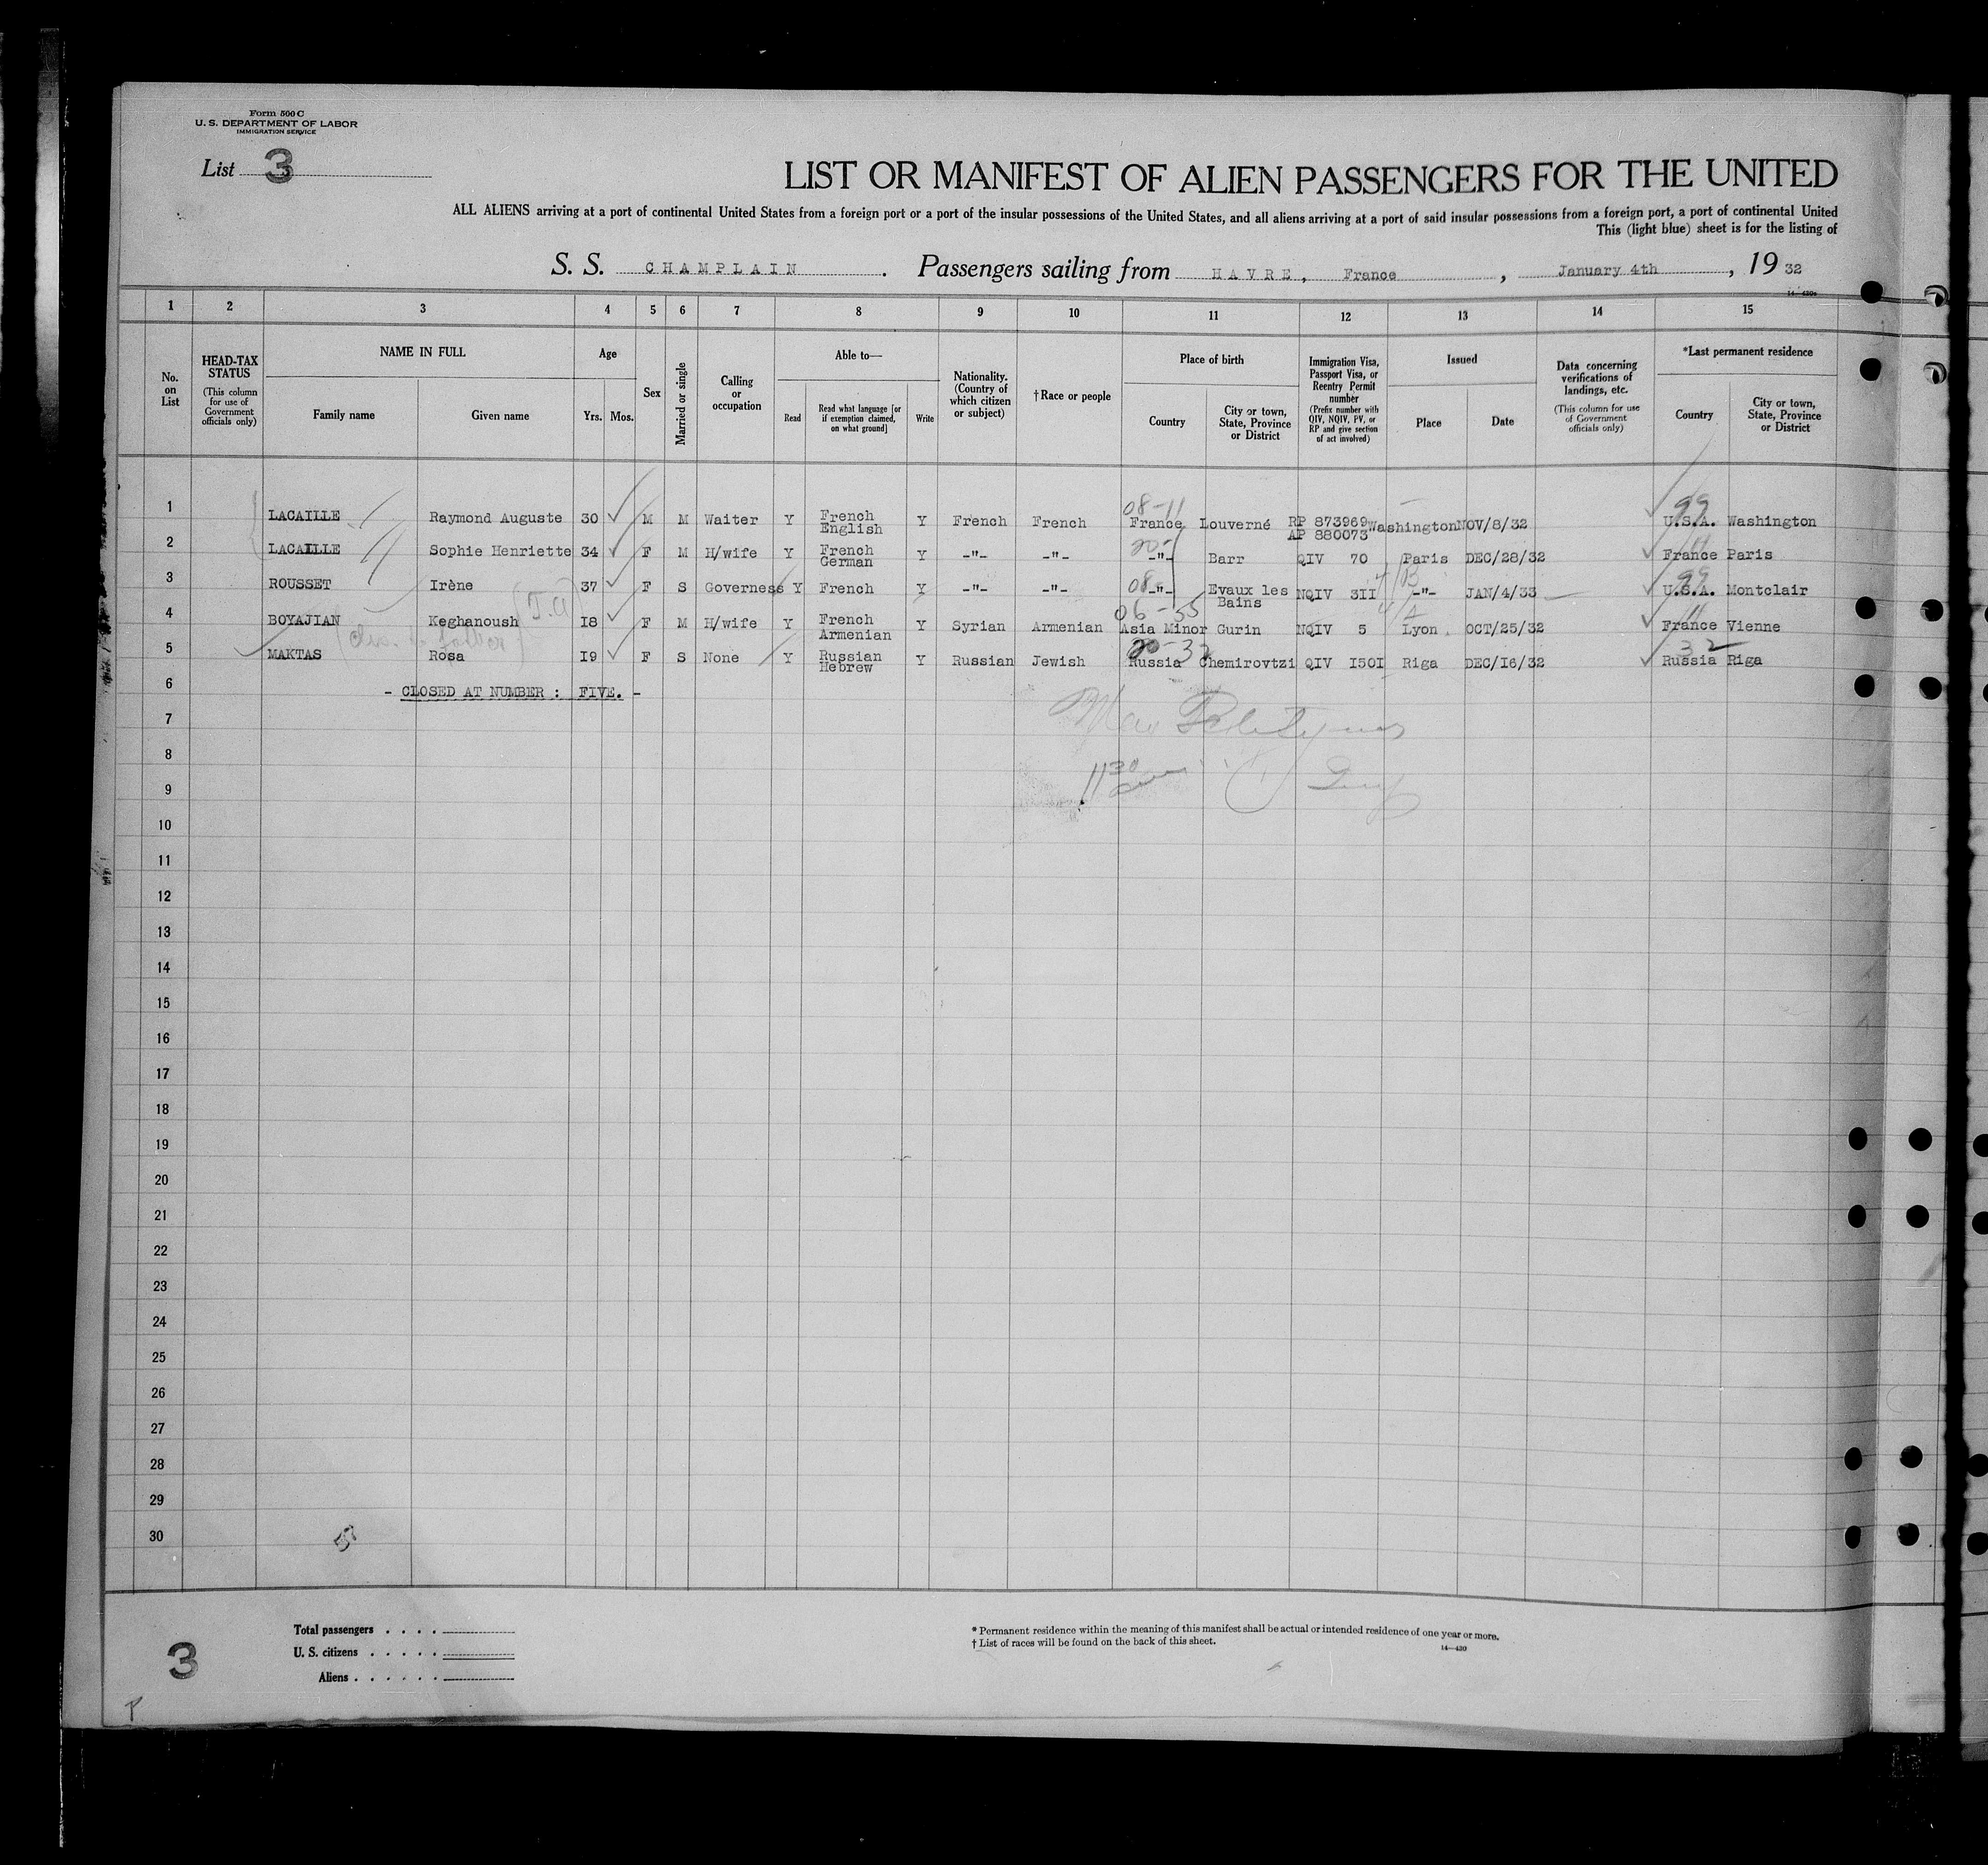 Form 500 C
U. S. DEPARTMENT OF LABOR
IMMIGRATION SERVICE
List 3
LIST OR MANIFEST OF ALIEN PASSENGERS FOR THE UNITED
ALL ALIENS arriving at a port of continental United States from a foreign port or a port of the insular possessions of the United States, and all aliens arriving at a port of said insular possessions from a foreign port, a port of continental United
This (light blue) sheet is for the listing of
S. S. CHAMPLAIN. Passengers sailing from HAVRE, France, January 4th, 19 32
1 2 3 4 5 6 7 8 9 10 11 12 13 14 15
No. on List
HEAD-TAX STATUS (This column for use of Government officials only)
NAME IN FULL
Family name
Given name
Age
Yrs. Mos.
Sex
Married or single
Calling or occupation
Able to—
Read
Read what language [or if exemption claimed, on what ground]
Write
Nationality. (Country of which citizen or subject)
†Race or people
Place of birth
Country
City or town, State, Province or District
Immigration Visa, Passport Visa, or Reentry Permit number (Prefix number with QIV, NQIV, PV, or RP and give section of act involved)
Issued
Place
Date
Data concerning verifications of landings, etc. (This column for use of Government officials only)
*Last permanent residence
Country
City or town, State, Province or District
08-11 99
1 LACAILLE Raymond Auguste 30 M M Waiter Y French English Y French French France Louverné RP 873969 AP 880073 Washington NOV/8/32 U.S.A. Washington
2 LACAILLE Sophie Henriette 34 F M H/wife Y French German Y -"- -"- -"- Barr QIV 70 Paris DEC/28/32 France Paris
3 ROUSSET Irène 37 F S Governess Y French Y -"- -"- 08 -"- Evaux les Bains NQIV 3II -"- JAN/4/33 99 U.S.A. Montclair
06-55
4 BOYAJIAN Keghanoush I8 F M H/wife Y French Armenian Y Syrian Armenian Asia Minor Gurin NQIV 5 Lyon OCT/25/32 France Vienne
5 MAKTAS Rosa I9 F S None Y Russian Hebrew Y Russian Jewish Russia Chemirovtzi QIV I50I Riga DEC/I6/32 32 Russia Riga
6 - CLOSED AT NUMBER : FIVE. -
7
8
9 11 30
10
11
12
13
14
15
16
17
18
19
20
21
22
23
24
25
26
27
28
29
30
Total passengers . . . .
U. S. citizens . . . . .
Aliens . . . . . .
3
* Permanent residence within the meaning of this manifest shall be actual or intended residence of one year or more.
† List of races will be found on the back of this sheet.
14—430